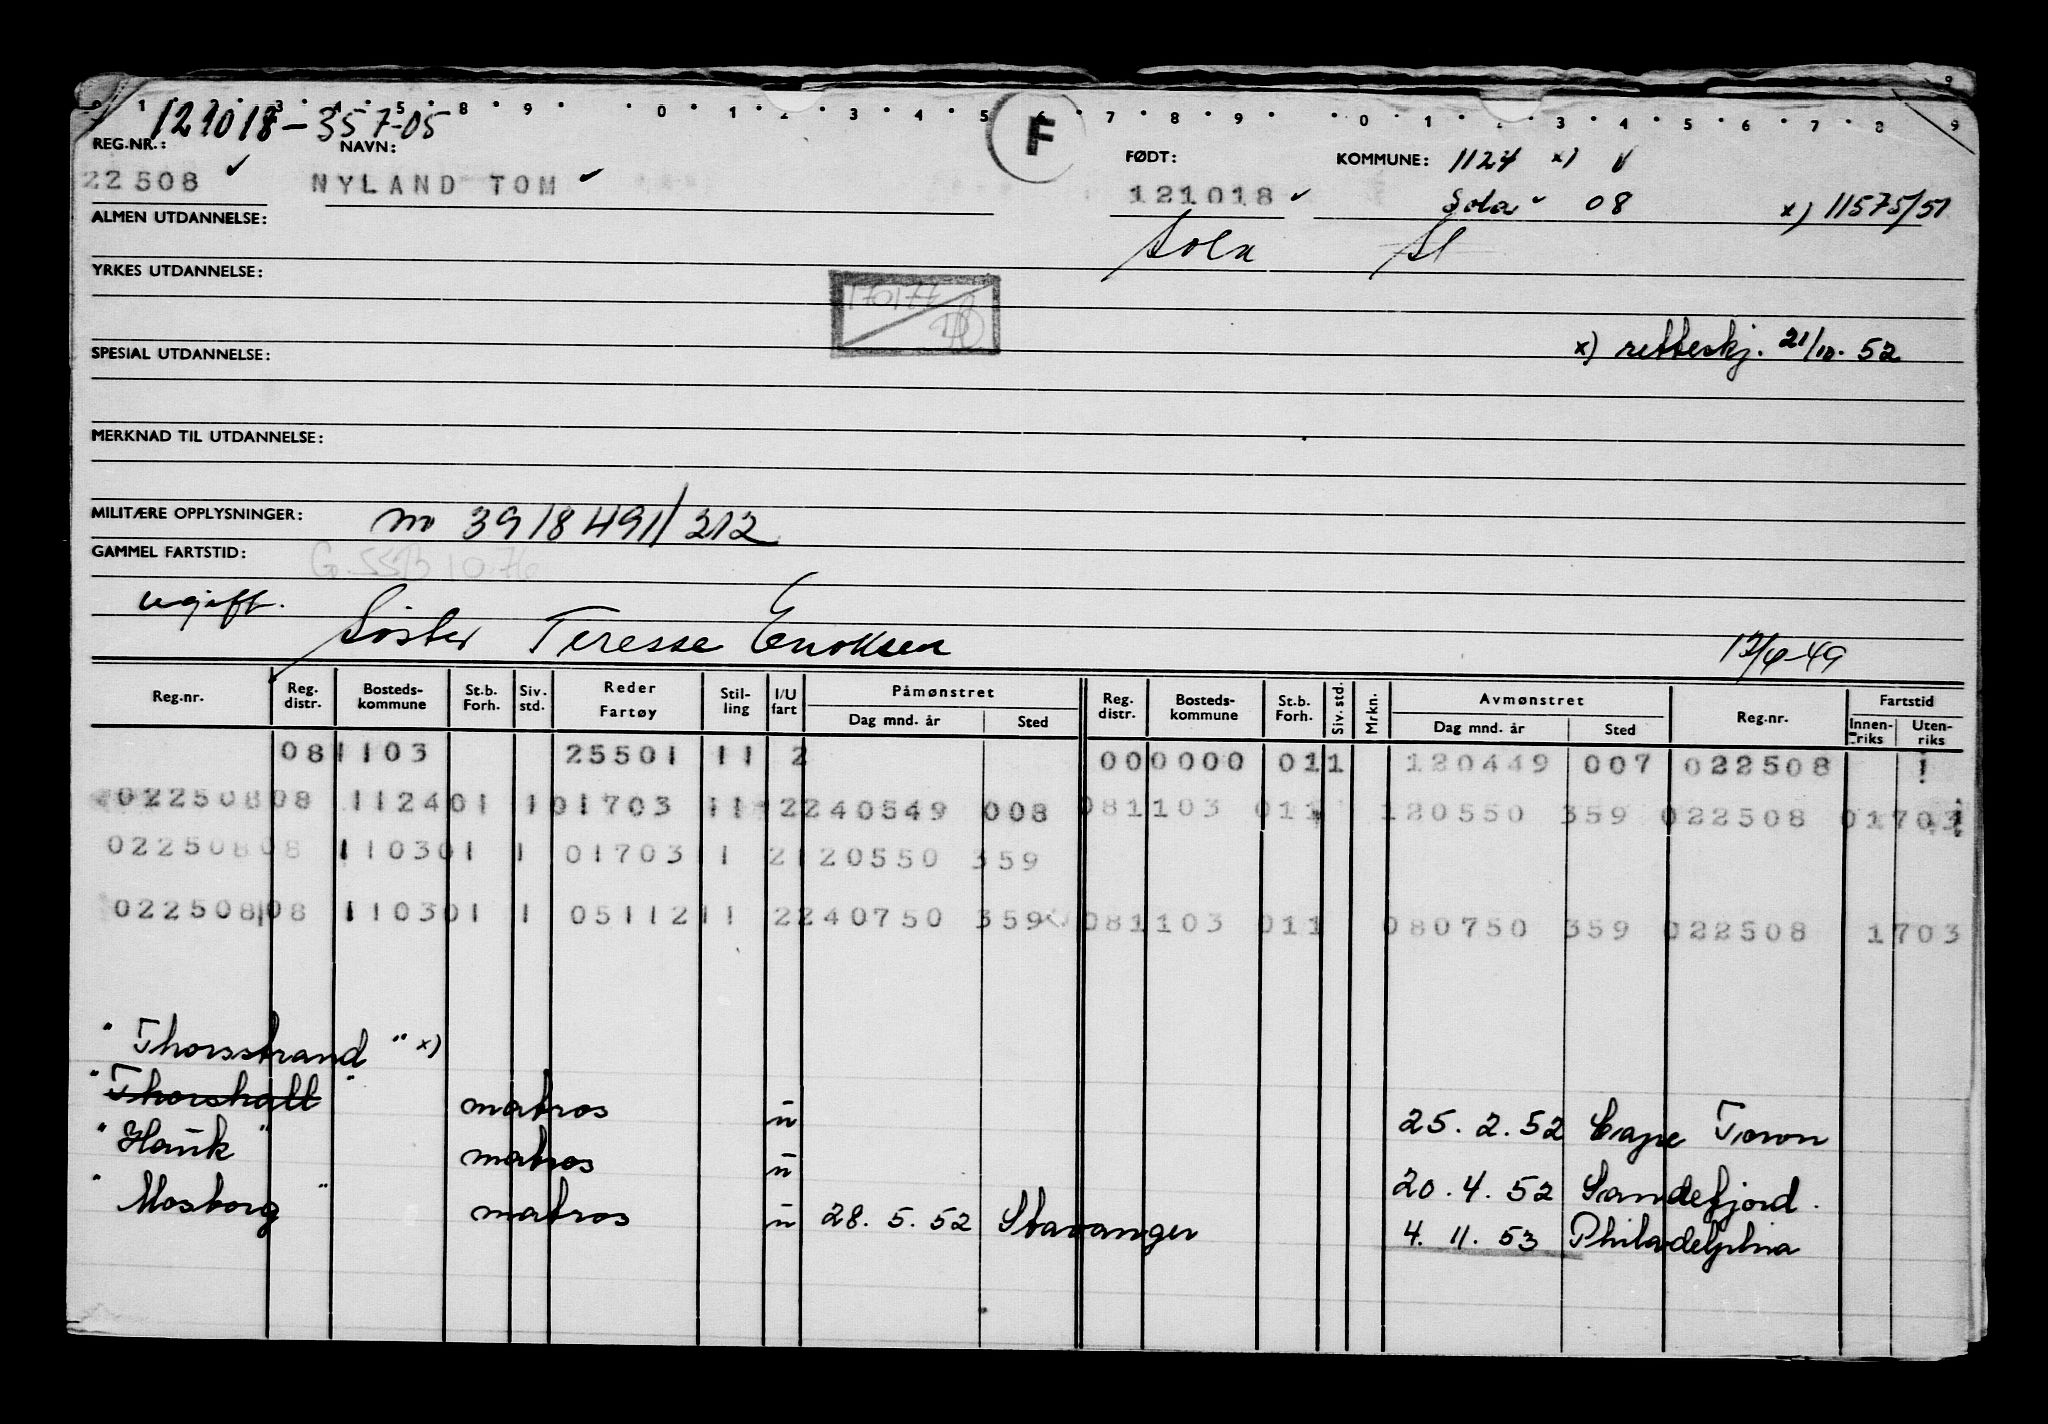 121018-357-05
REG.NR.: NAVN: F FØDT: KOMMUNE: 1124 x)
22508 NYLAND TOM 121018 Sola 08 x) 11575/51
ALMEN UTDANNELSE: Sola
YRKES UTDANNELSE:
SPESIAL UTDANNELSE: x) 21/10. 52
MERKNAD TIL UTDANNELSE:
MILITÆRE OPPLYSNINGER: m 3918491/212
GAMMEL FARTSTID:
ugift. Søster Teresse Enoksen
Reg.nr. Reg. distr. Bosteds-kommune St.b. Forh. Siv. std. Reder Fartøy Stil-ling I/U fart Påmønstret Dag mnd. år Sted Reg. distr. Bosteds-kommune St.b. Forh. Siv. std. Mrkn. Avmønstret Dag mnd. år Sted Reg.nr. Fartstid Innen-riks Uten-riks
081103 25501 11 2 000000 011 120449 007 022508
02250808 112401 101703 11 2240549 008 081103 011 120550 359 022508 01703
02250808 110301 1 017031 1 2120550 359
02250808 110301 1 0511211 2240750 359 081103 011 080750 359 022508 1703
"Thorsstrand" x)
"Thorshall" matros u 25. 2. 52 Cape Town
"Hauk" matros u 20. 4. 52 Sandefjord.
"Mosborg" matros u 28. 5. 52 Stavanger 4. 11. 53 Philadelphia